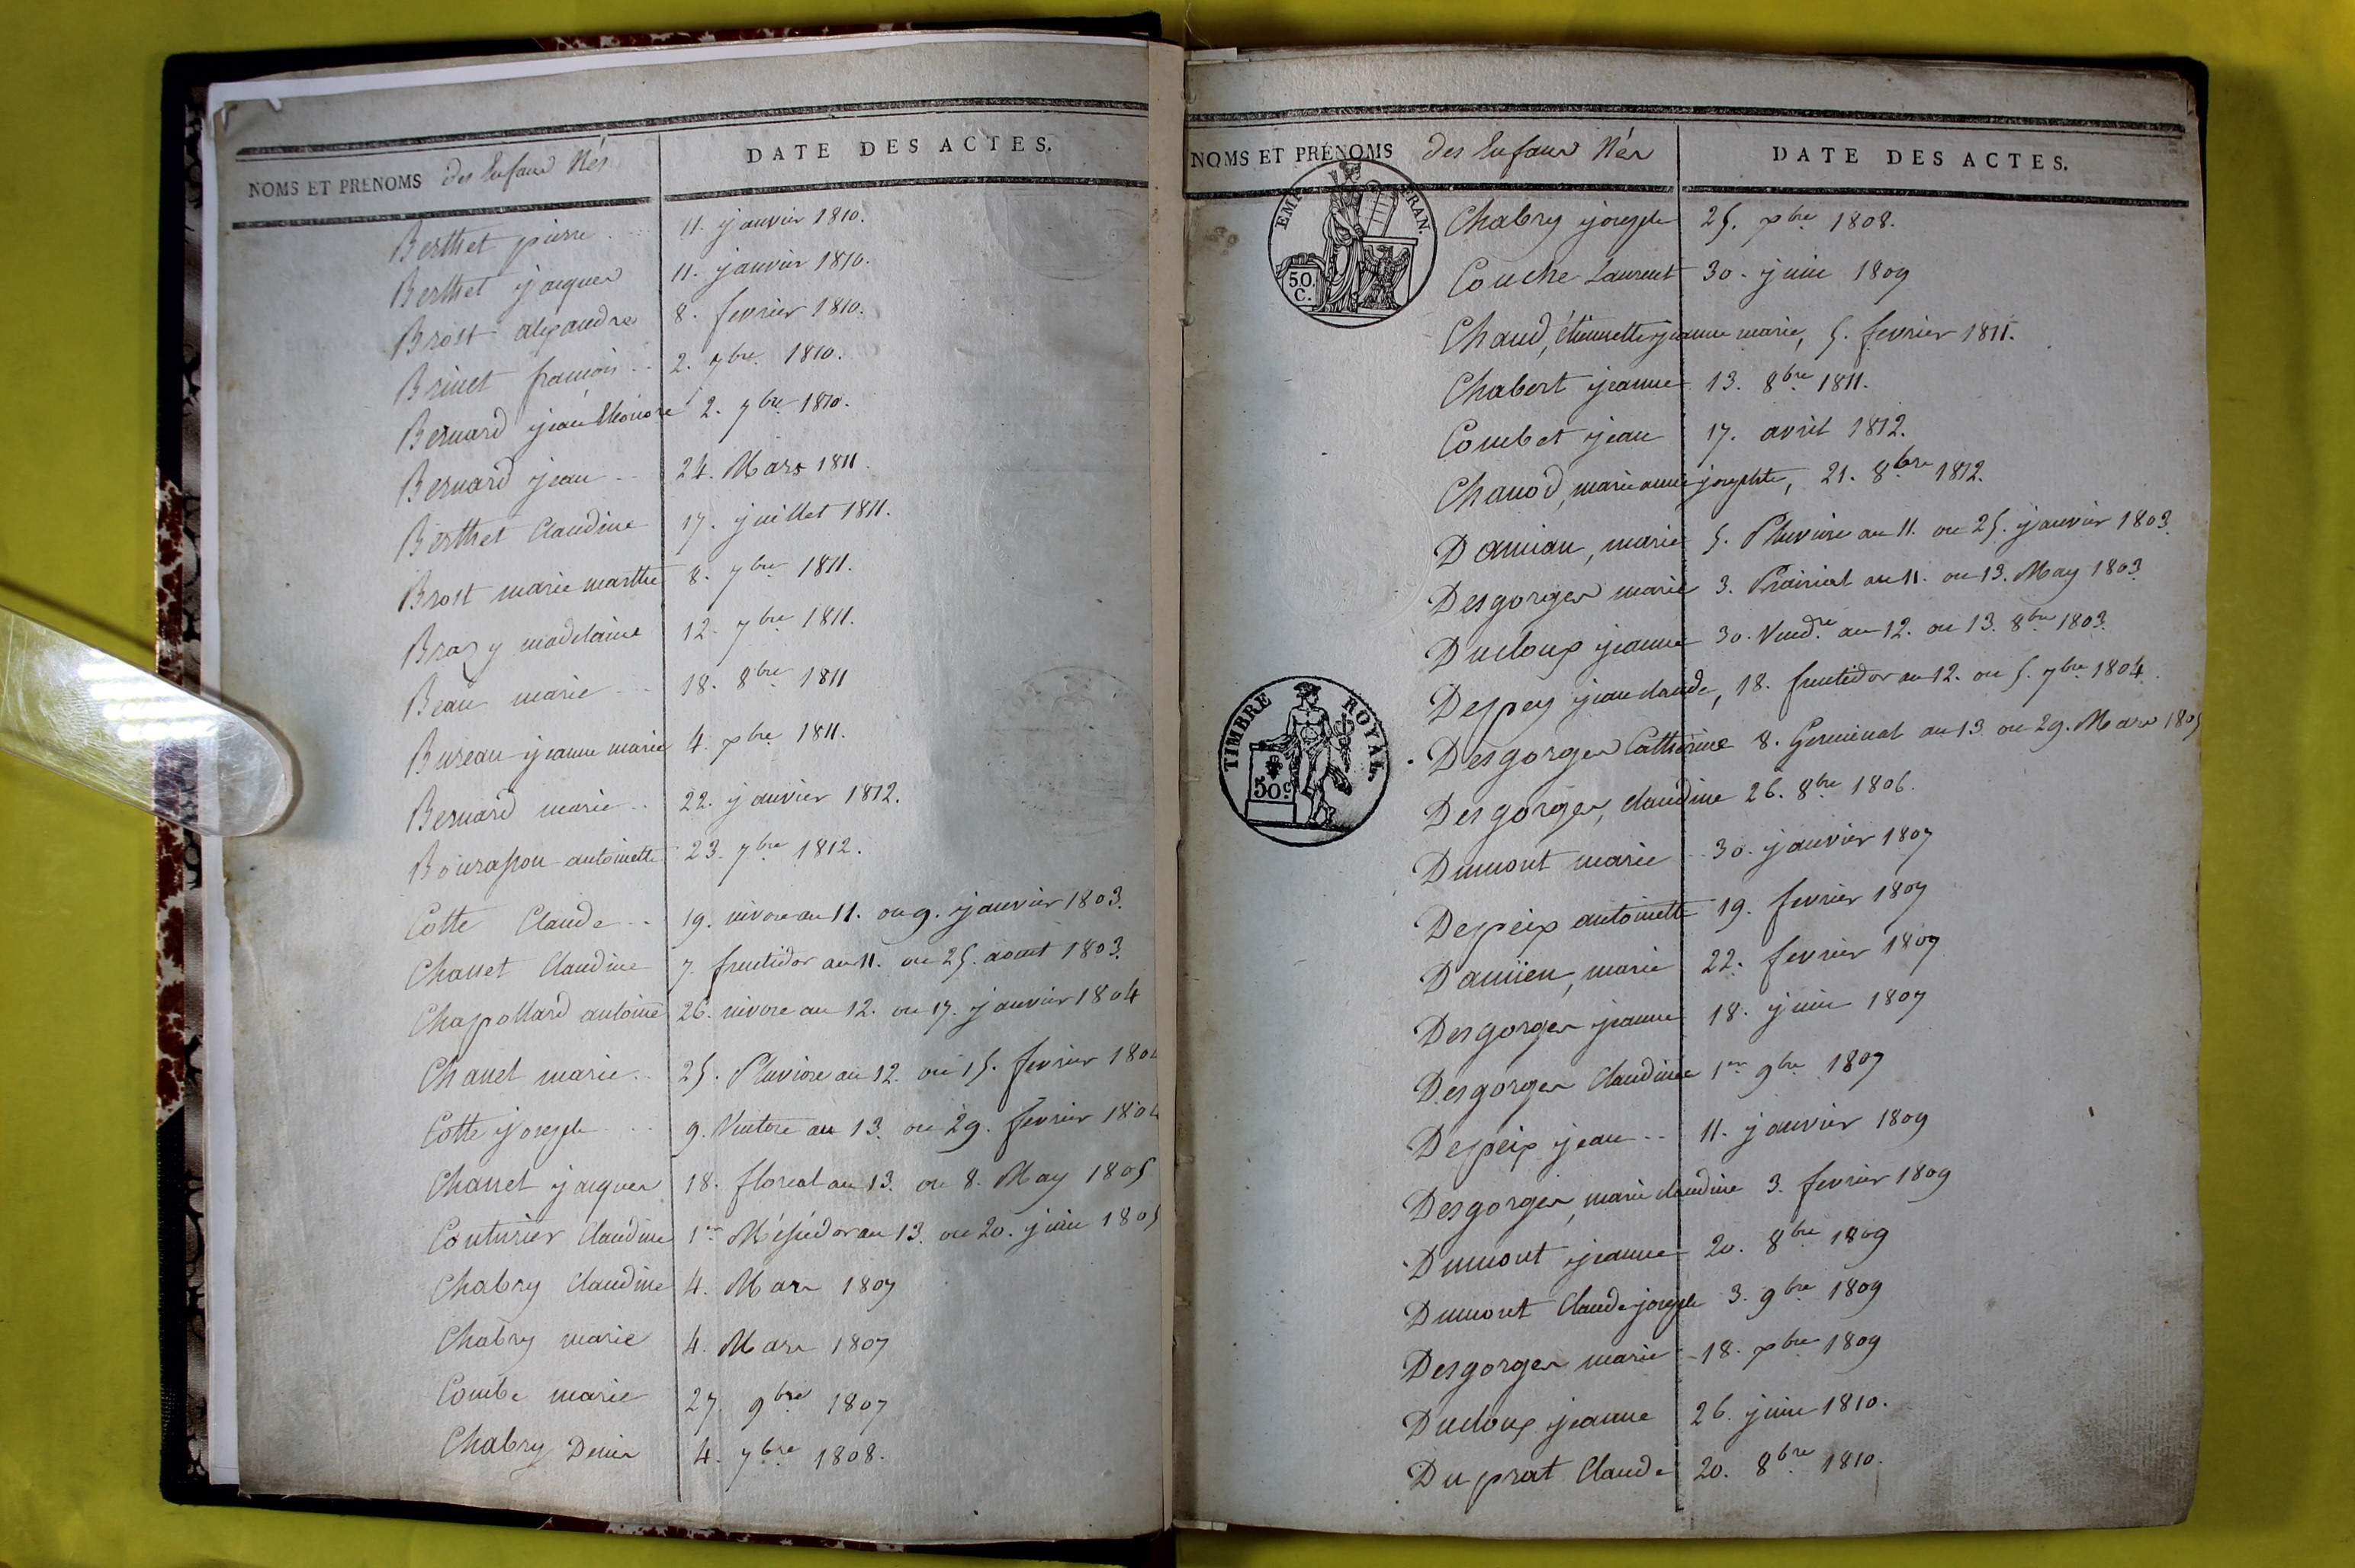 NOMS ET PRENOMS des Enfans Nés DATE DES ACTES.
Berthet pierre .. 11. janvier 1810.
Berthet jacques 11. janvier 1810.
Brost alexandre 8. fevrier 1810.
Brinet francois .. 2. 7bre 1810.
Bernard jean Eléonore 2. 7bre 1810.
Bernard jean .. 24. Mars 1811.
Berthet Claudine 17. juillet 1811.
Brost marie marthe 8. 7bre 1811.
Brazy madelaine 12. 7bre 1811.
Beau marie .. 18. 8bre 1811
Bureau jeanne marie 4. xbre 1811.
Bernard marie .. 22. janvier 1812.
Bourasson antoinette 23. 7bre 1812.
Cotte Claude .. 19. nivose an 11. ou 9. janvier 1803.
Chanet Claudine 7. fructidor an 11. ou 25. aout 1803.
Chapottard antoine 26. nivose an 12. ou 17. janvier 1804
Chanet marie .. 25. Pluviose an 12. ou 15. fevrier 1804
Cotte joseph .. 9. Ventose an 13. ou 29. fevrier 1804
Chanet jacques 18. floreal an 13. ou 8. May 1805
Couturier Claudine 1er Messidor an 13. ou 20. juin 1805
Chabry Claudine 4. Mars 1807
Chabry marie 4. Mars 1807
Combe marie 27. 9bre 1807
Chabry Denis 4. 7bre 1808.
NOMS ET PRÉNOMS des Enfans Nés DATE DES ACTES.
EMP. FRAN.
50. C.
Chabry joseph 25. xbre 1808.
Couche Laurent 30. juin 1809
Chaud, étiennette jeanne marie, 5. fevrier 1811.
Chabert jeanne 13. 8bre 1811.
Combet jean 17. avril 1812.
Chanod, marie anne josephte, 21. 8bre 1812.
Damian, marie 5. Pluviose an 11. ou 25. janvier 1803.
Desgorges marie 3. Prairial an 11. ou 13. May 1803.
Ducloux jeanne 30. Vendre an 12. ou 13. 8bre 1803.
Despey jean claude, 18. fructidor an 12. ou 5. 7bre 1804.
TIMBRE ROYAL.
50c
Desgorges Catherine 8. Germinal an 13. ou 29. Mars 1805
Desgorges, claudine 26. 8bre 1806.
Dumont marie .. 30. janvier 1807
Despeix antoinette 19. fevrier 1807
Damien, marie 22. fevrier 1807
Desgorges jeanne 18. juin 1807
Desgorges Claudine 1er 9bre 1807
Despeix jean .. 11. janvier 1809
Desgorges, marie claudine 3. fevrier 1809
Dumont jeanne 20. 8bre 1809
Dumont Claude joseph 3. 9bre 1809
Desgorges marie 18. xbre 1809
Ducloux jeanne 26. juin 1810.
Duprat Claude 20. 8bre 1810.